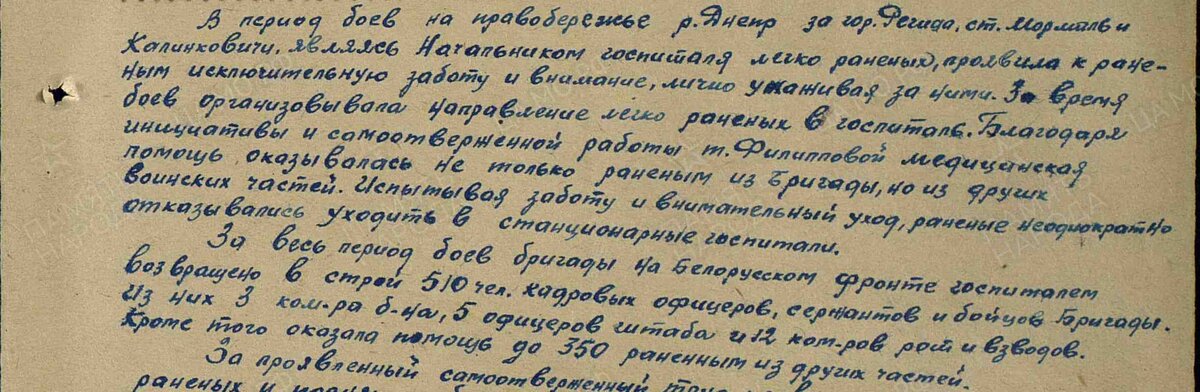 В период боев на правобережье р. Днепр за гор. Речица, ст. Мормыль и
Калинковичи, являясь Начальником госпиталя легко раненых, проявила к ране-
ным исключительную заботу и внимание, лично ухаживая за ними. За время
боев организовывала направление легко раненых в госпиталь. Благодаря
инициативы и самоотверженной работы т. Филипповой медицинская
помощь оказывалась не только раненым из Бригады, но из других
воинских частей. Испытывая заботу и внимательный уход, раненые неоднократно
отказывались уходить в станционарные госпитали.
За весь период боев бригады на Белорусском фронте госпиталем
возвращено в строй 510 чел. кадровых офицеров, сержантов и бойцов Бригады.
Из них 3 ком-ра б-на, 5 офицеров штаба и 12 ком-ров рот и взводов.
Кроме того оказала помощь до 350 раненным из других частей.
За проявленный самоотверженный
раненых и